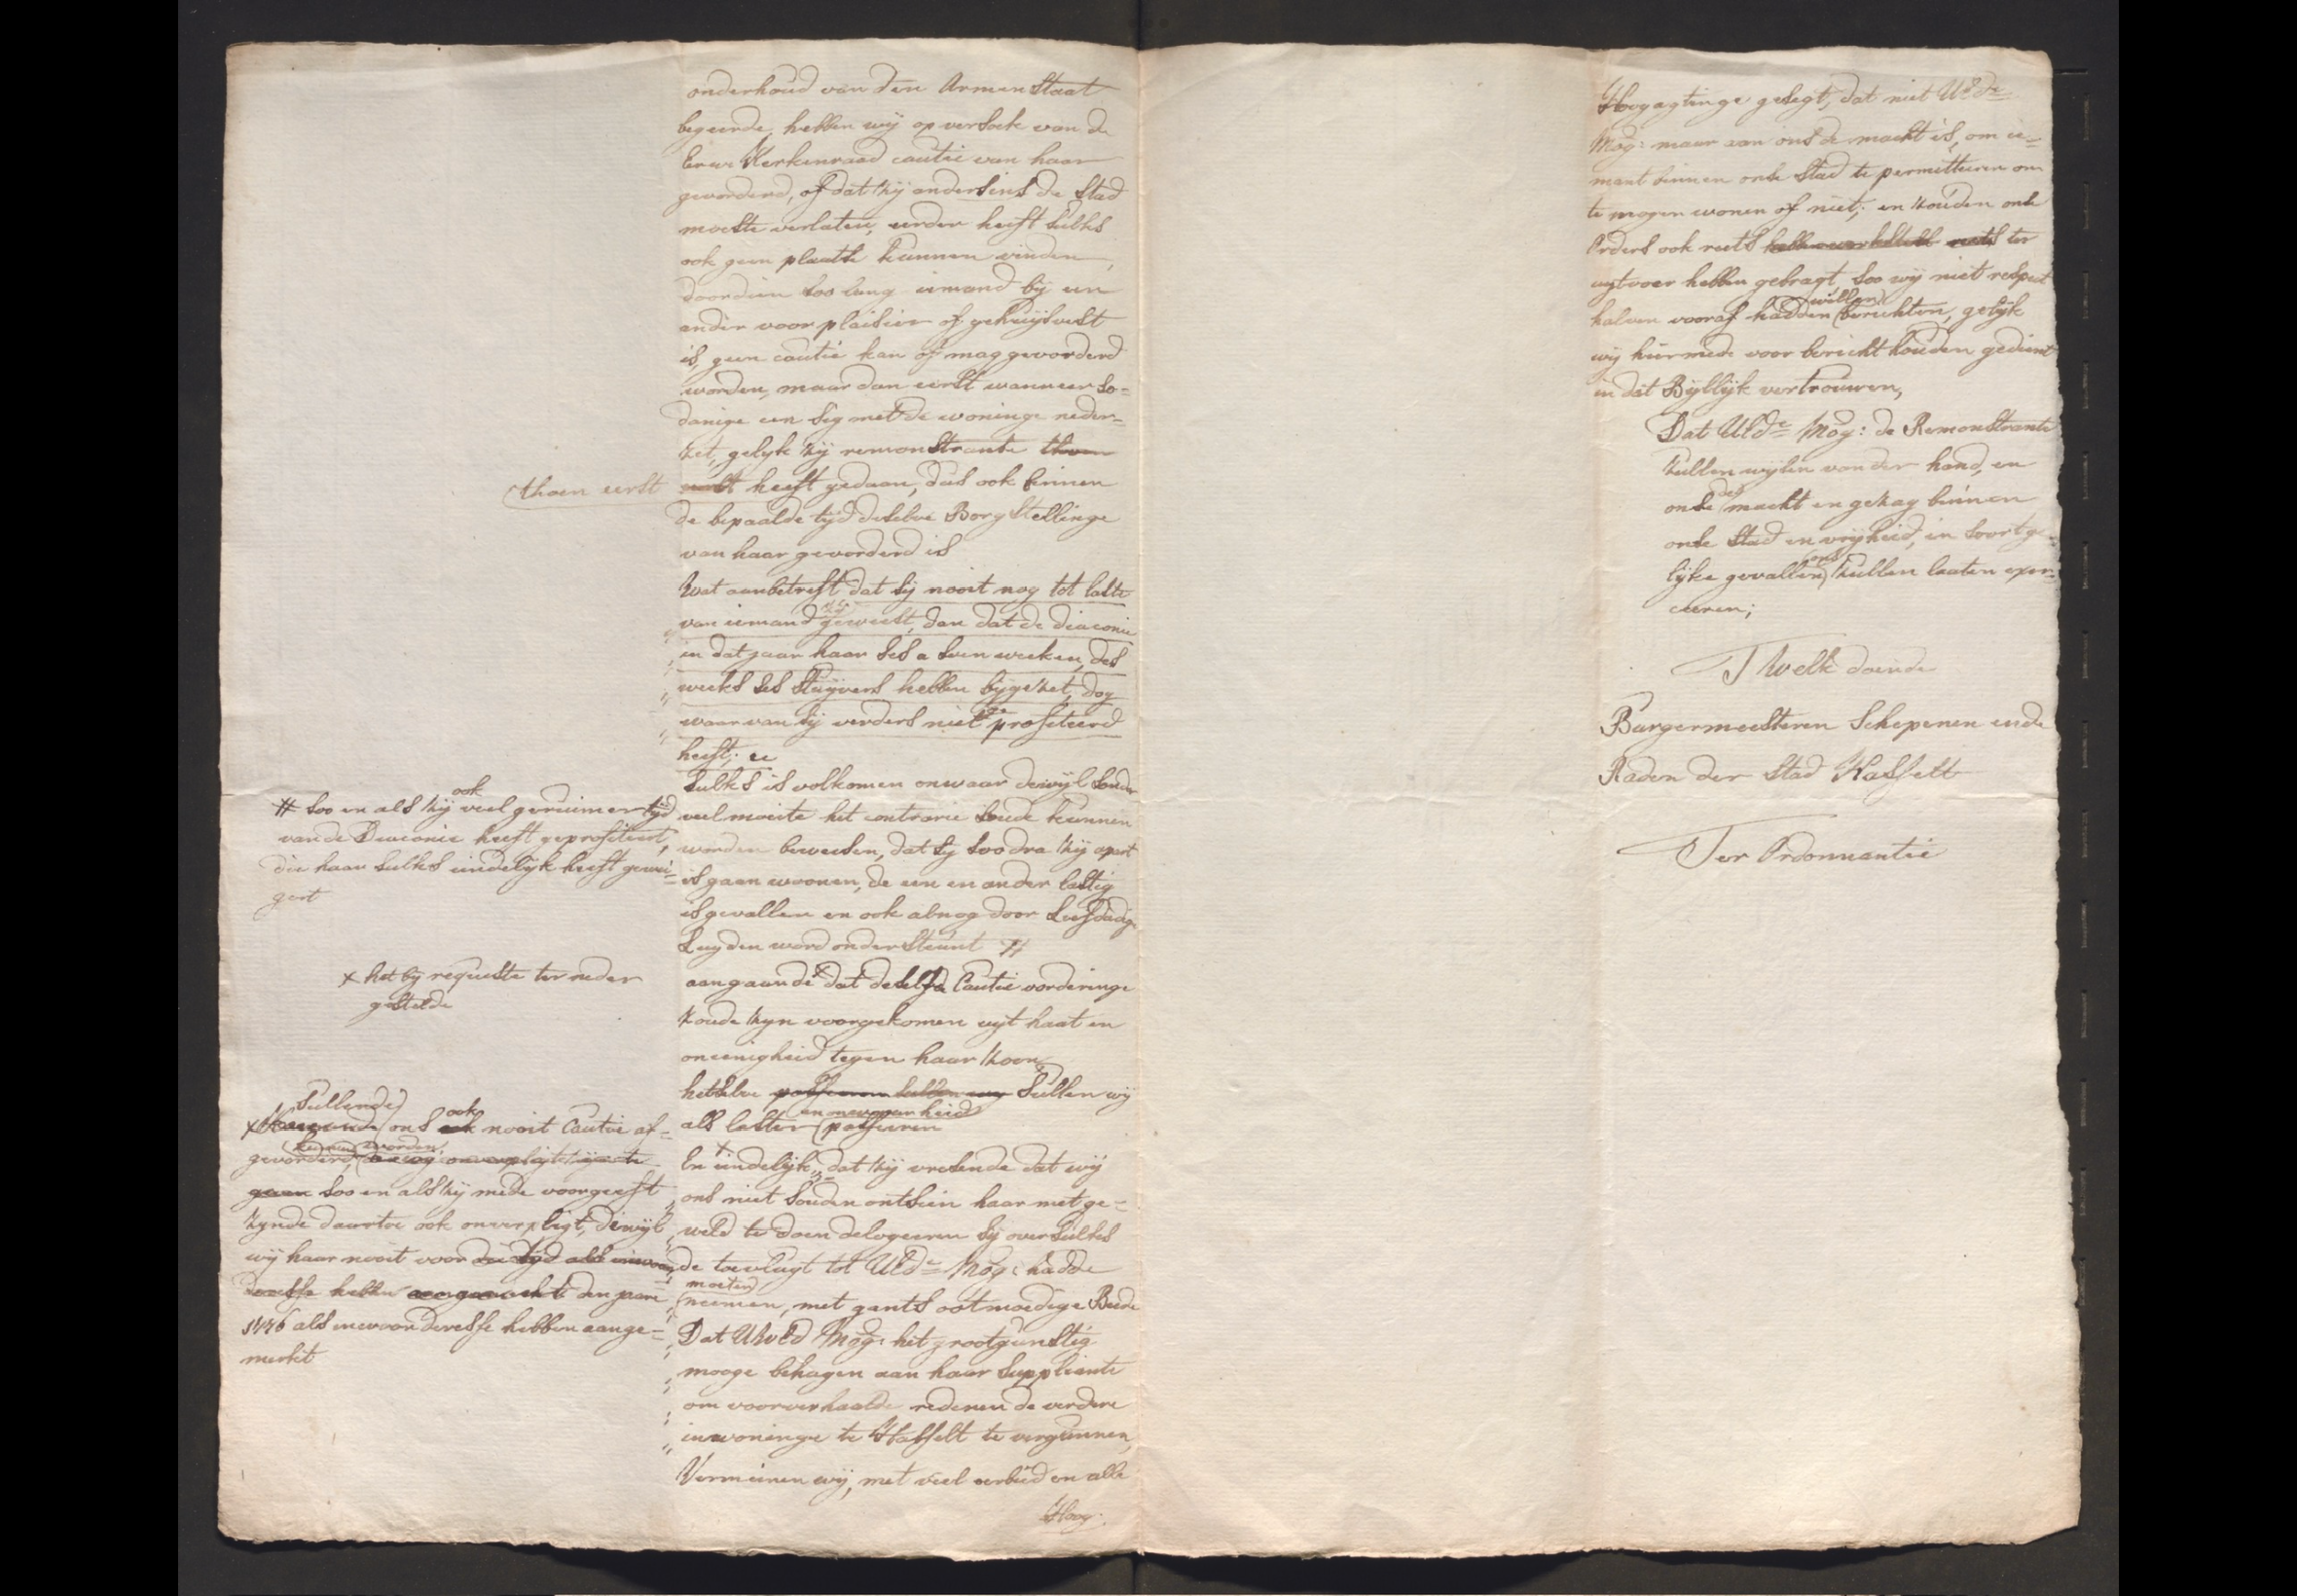 onderhoud van den Armen Staat
begeerde, hebben wij op versoek van de
Eerw Kerkenraad cautie van haar
gevorderd, of dat zij andersins de Stad
moeste verlaten, eerder heeft sulks
ook geen plaatse kunnen vinden,
doordien soo lang iemand bij een
ander voor plaisier of gehuijsvest
is, geen cautie kan of mag gevorderd
worden, maar dan eerst wanneer so=
danige een sig met de woninge neder=
zet, gelyk zij remonstrante thoen
eerst heeft gedaan, dus ook binnen
de bepaalde tijd deselve Borg Stellinge
van haar gevorderd is
Wat aanbetreft dat sij nooit nog tot laste
van iemand zij geweest, dan dat de diaconie
in dat jaar haar ses a seven weeken, des
weeks ses stuyvers hebben bijgezet, dog
waar van sij verders niet geprofiteerd
heeft; ee
Sulks is volkomen onwaar dewijl sonder
veel moeite het contrarie soude kunnen
worden beweesen, dat sij soodra zij apart
is gaan woonen, de een en ander lastig
is gevallen en ook alnog door Liefdadige
Luyden word ondersteunt #
aangaande x dat deselfde Cautie vorderinge
zoude zyn voorgekomen uyt haat en
oneenigheid tegen haar zoon,
hetselve passeeren sullen wij Sullen wij
als laster en onwaarheid passeeren
x En eindelijk, dat zij vresende dat wij
ons niet souden ontsien haar met ge=
weld te doen delogeeren sij oversulks
de toevlugt tot UEd=e Mog: hadde
moeten neemen, met gants ootmoedige Beede
Dat UWEd Mog: het grootgunstig
mooge behagen aan haar Suppliante
om voorverhaalde redenen de verdere
inwoninge te Hasselt te vergunnen,
Vermeinen wij, met veel eerbied en alle
Hoog:
thoen eerst
# soo en als zij ook veel geruimer tijd
van de Diaconie heeft geprofiteert,
die haar sulks eindelijk heeft gewei=
gert
x het bij requeste ter neder
gestelde
Sullende
x ons ook nooit Cautie af=
gevorderd kunnen worden,
gaan soo en als zij mede voorgeeft
zynde daartoe ook onverpligt, dewijl
wij haar nooit voor die tijd als inwoon
deresse hebben aangemerkt den jaare
1776 als inwoonderesse hebben aange=
merkt
Hoogagtinge gesegt, dat niet UEd=e
Mog: maar aan ons de macht is, om ie=
mant binnen onse Stad te permitteeren om
te mogen wonen of niet; en zouden onse
Orders ook reets ter
uytvoer hebben gebragt, soo wij niet respect
halven vooraf hadden willen berichten, gelijk
wij hiermede voor bericht souden gedient
in dat Byllijk vertrouwen,
Dat UEd=e Mog: de Remonstrante
zullen wijsen van der hand, en
onse des macht en gezag binnen
onse Stad en vrijheid, in soortge=
lijke gevallen ons zullen laaten exer=
ceeren;
T Welk doende
Burgermeesteren Schepenen ende
Raden der Stad Hasselt
Ter Ordonnantie